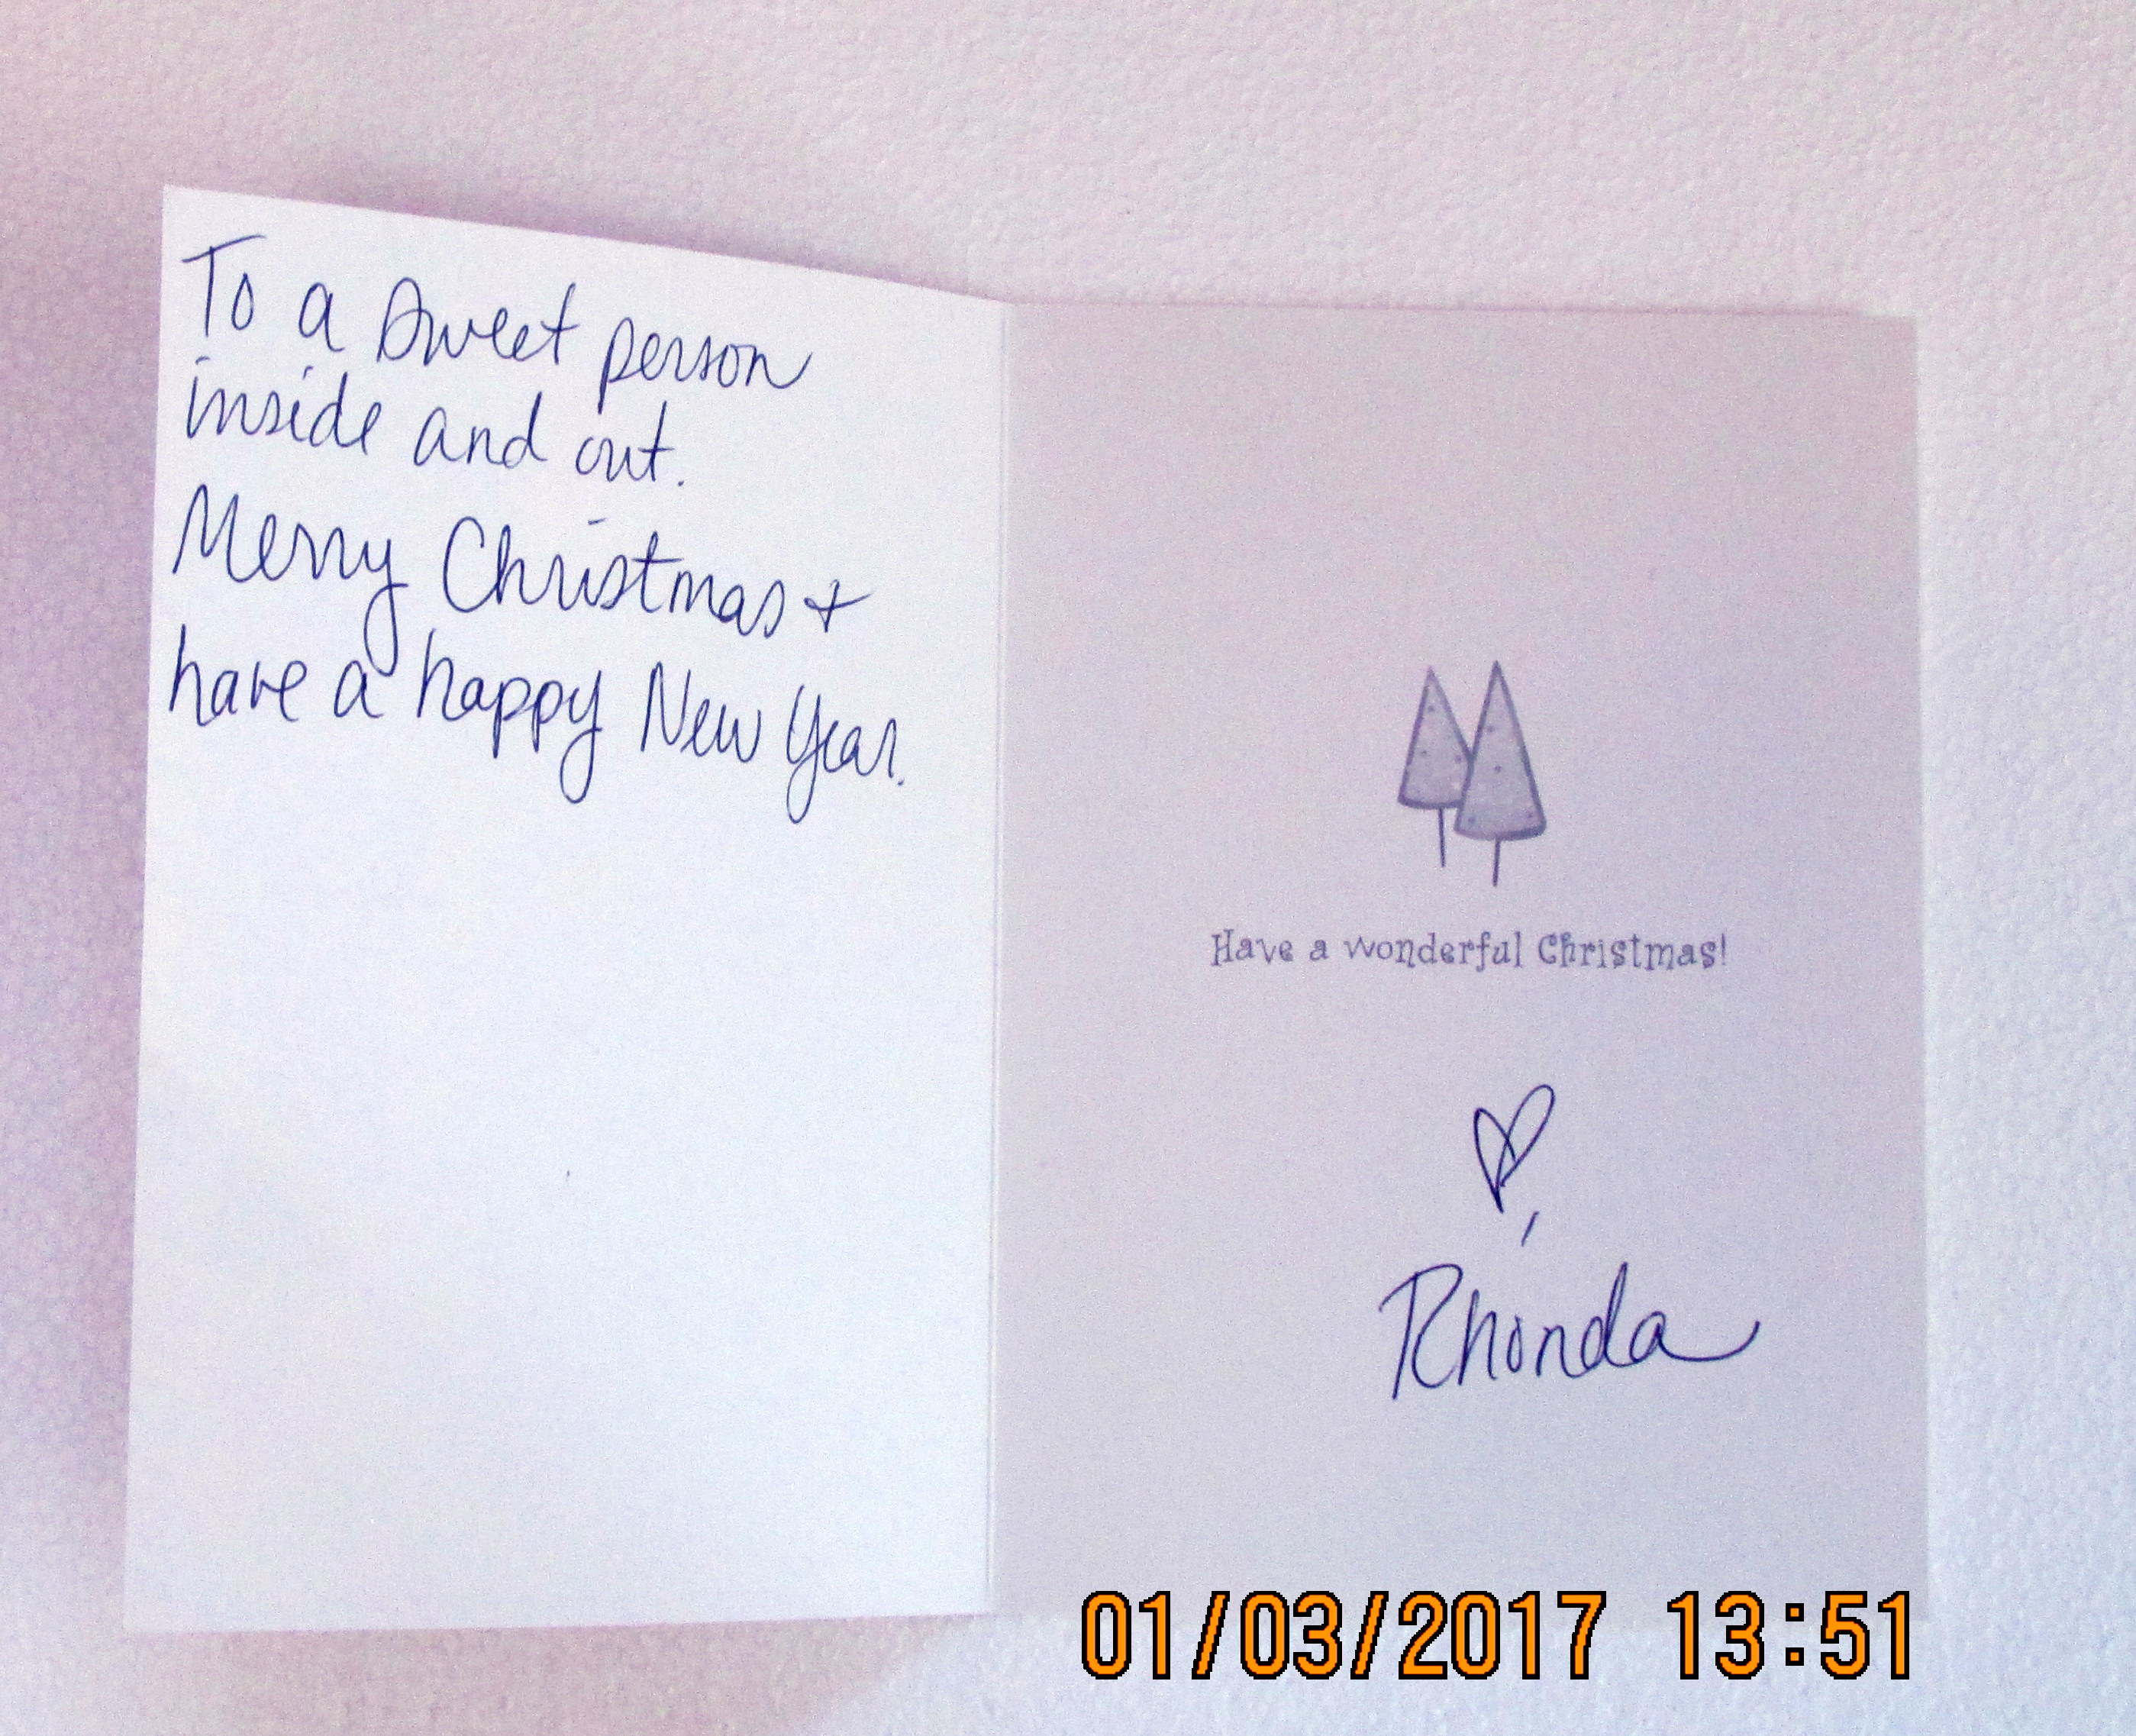 To a sweet person
inside and out.
Merry Christmas +
have a happy New Year.
Have a wonderful Christmas!
♡,
Rhonda
01/03/2017 13:51